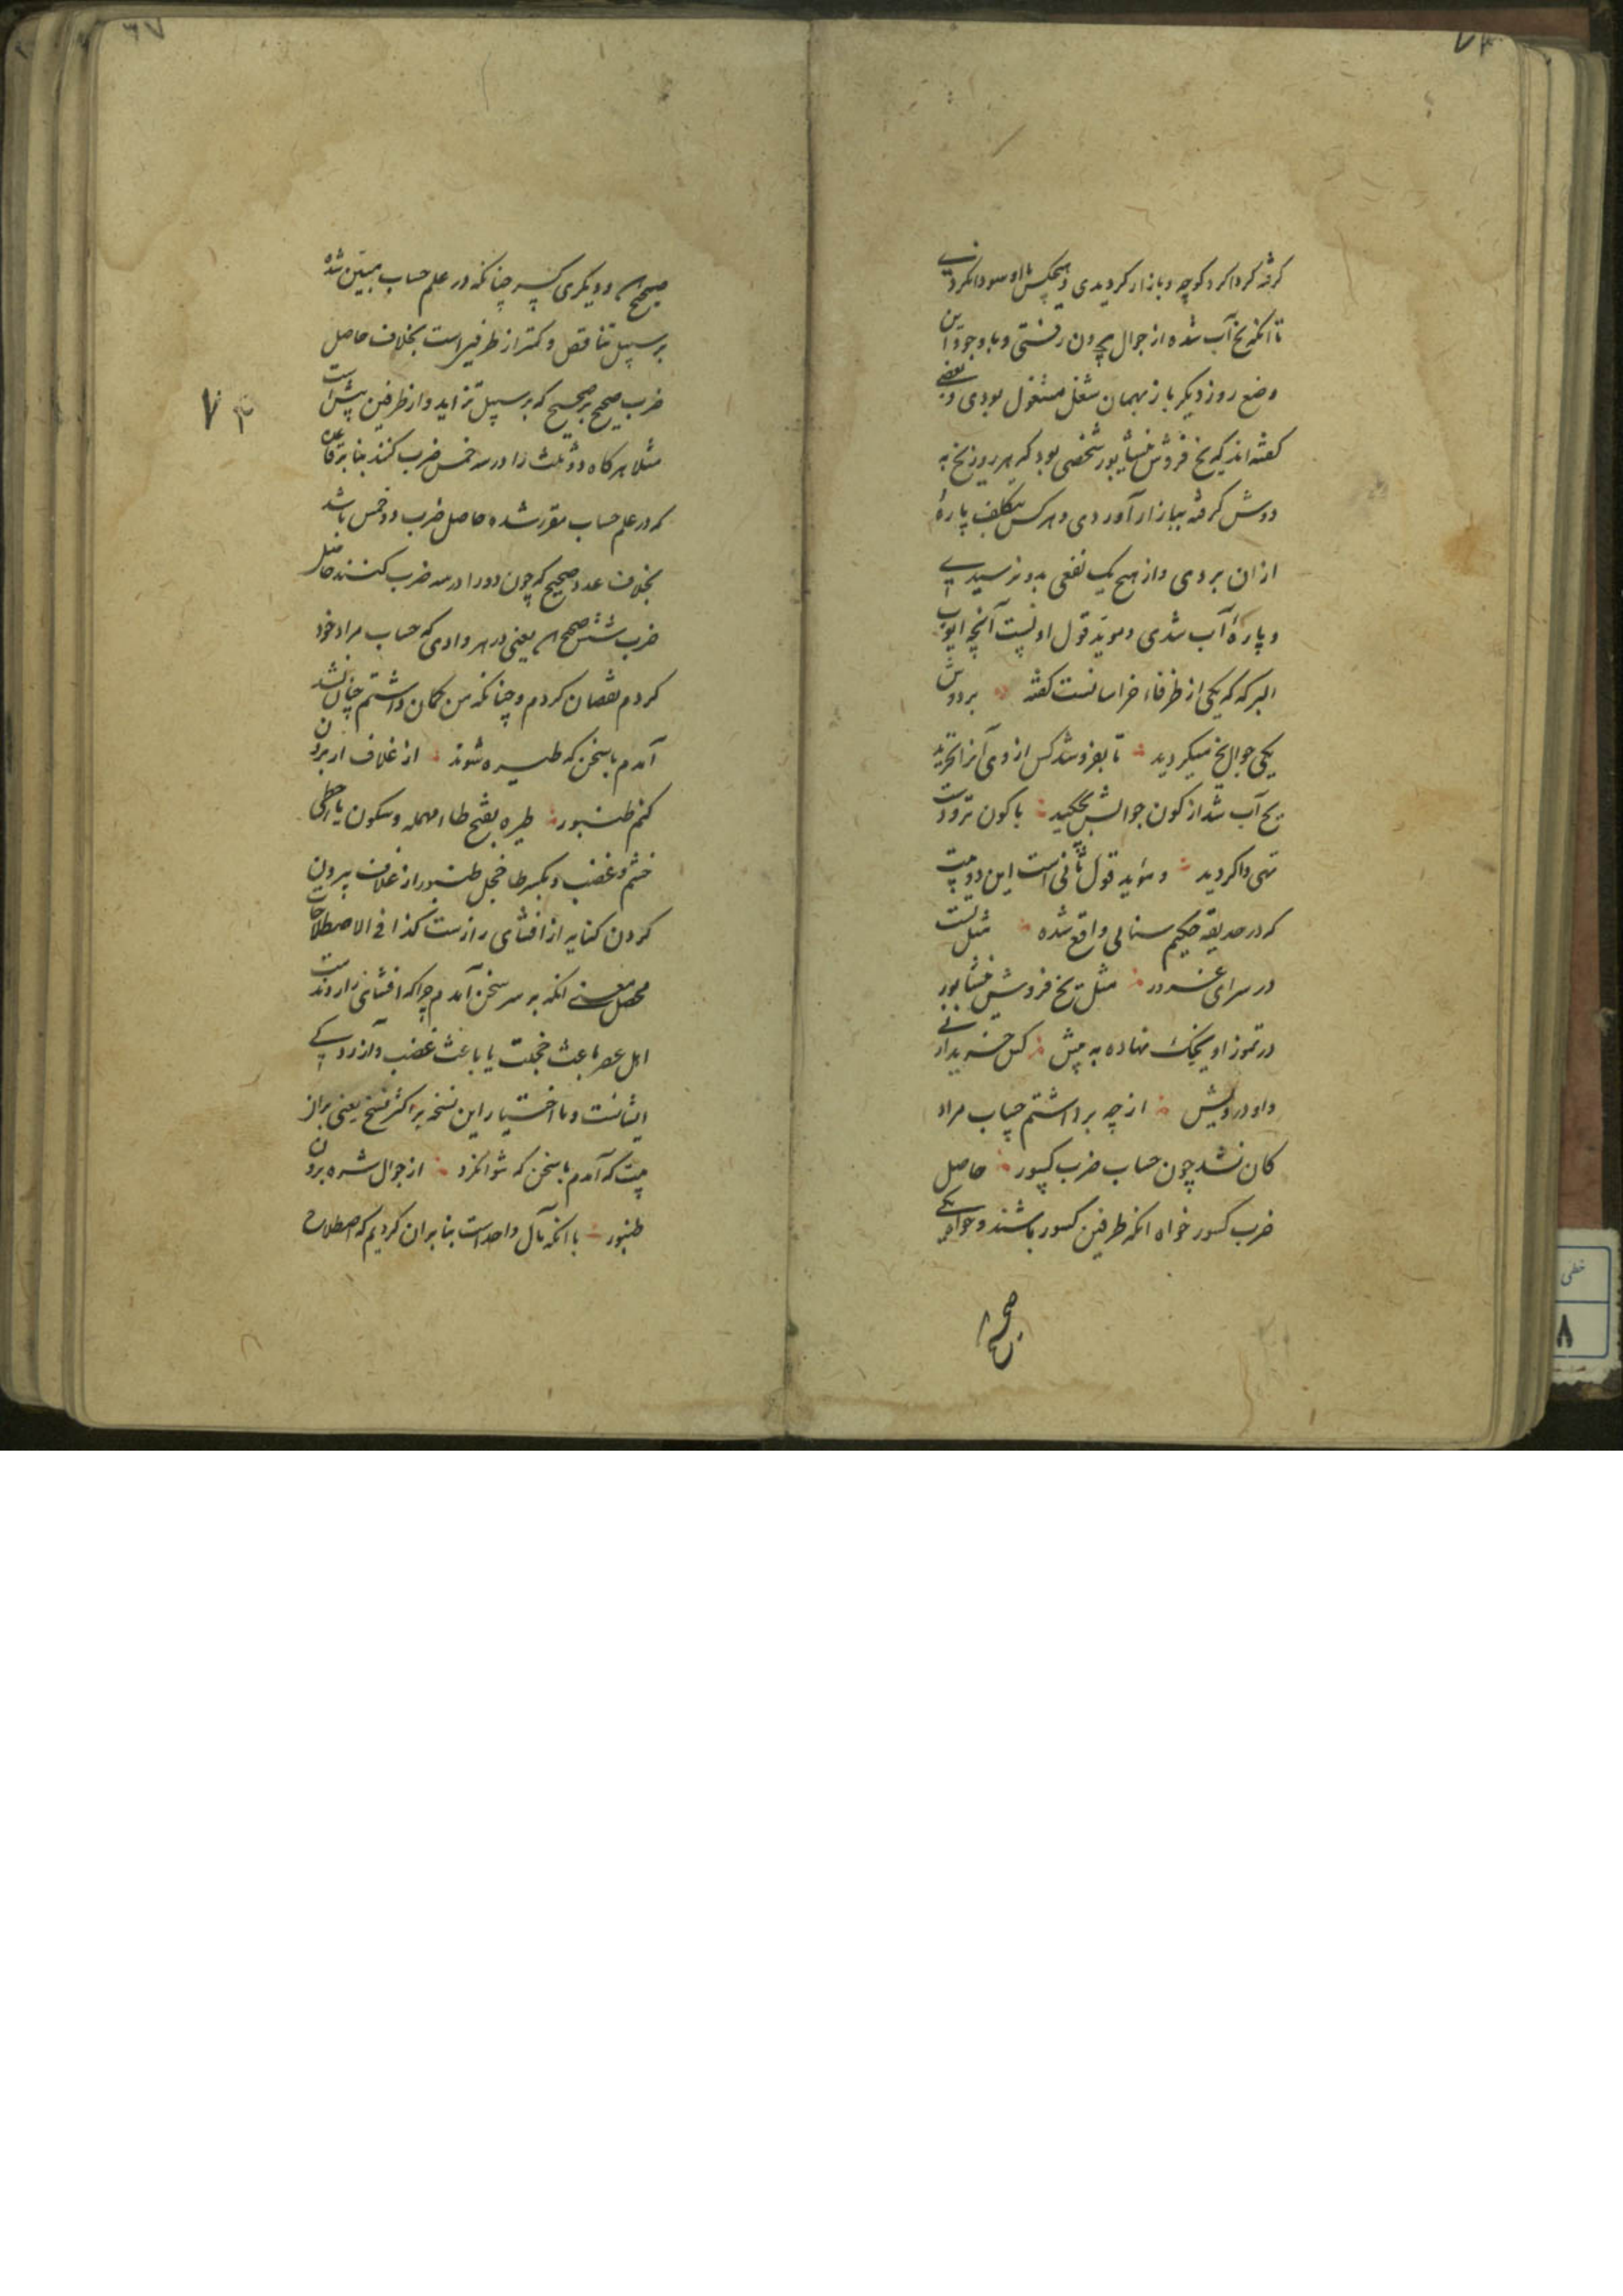 گرفته کرداکرد کوچه و بازار کردیدی و هیچکس با او سودا نکردی
تا آنکه یخ آب شده از جوال بیرون رفتی و با وجود این
وضع روز دیگر باز بهمان شغل مشغول بودی و بعضی
گفته اند که یخ فروش نیشابور شخصی بود که هر روز یخ به
دوش گرفته ببازار آوردی و هر کس بتکلف پارهٔ
ازان بردی و از هیچ یک نفعی بدو نرسیدی
و پارهٔ آب شدی و موید قول اولست آنچه ایوب
البرکه که یکی از ظرفاء خراسانست گفته بر دوش
یکی جوال یخ میکردید تا بفروشد کس از وی آنرا نخرید
یخ آب شد از کون جوالش بچکید با کون تر و دست
تهی واکردید و موید قول ثانی است این دو بیت
که در حدیقه حکیم سنائی واقع شده مثلت
در سرای غرور مثل یخ فروش نیشابور
در تموز او یخک نهاده به پیش کس خریدار نی
و او درویش از چه برداشتم حساب مراد
کان نشد چون حساب ضرب کسور حاصل
ضرب کسور خواه آنکه طرفین کسور باشند و خواه یکی
صحیح
۷۳
صحیح و دیگری کسر چنانکه در علم حساب مبین شده
بر سبیل تناقص و کمتر از طرفین است بخلاف حاصل
ضرب صحیح بر صحیح که بر سبیل تزاید و از طرفین بیش است
مثلا هر کاه دو ثلث را در سه خمس ضرب کنند بنا بر قاعده
که در علم حساب مقرر شده حاصل ضرب دو خمس باشد
بخلاف عدد صحیح که چون دو را در سه ضرب کنند حاصل
ضرب شش صحیح یعنی در هر وادی که حساب مراد خود
کردم نقصان کردم و چنانکه من کمان داشتم چنان نشد
آمدم با سخن که طیره شوند از غلاف ار برون
کنم طنبور طیره بفتح طاء مهمله و سکون یاء حطی
خشم و غضب و بکسر طا خجل طنبور از غلاف بیرون
کردن کنایه از افشای رازست کذا فی الاصطلاحات
محصل معنی آنکه بر سر سخن آمدم چرا که افشای راز
اهل عصر باعث خجلت یا باعث غضب و آزردکی
ایشانست و ما اختیار این نسخه بر اکثر نسخ یعنی براز
بیت که آمدم با سخن که نتوانکرد از جوال شره برون
طنبور با آنکه مآل واحد است بنا بر آن کردیم که اصطلاح